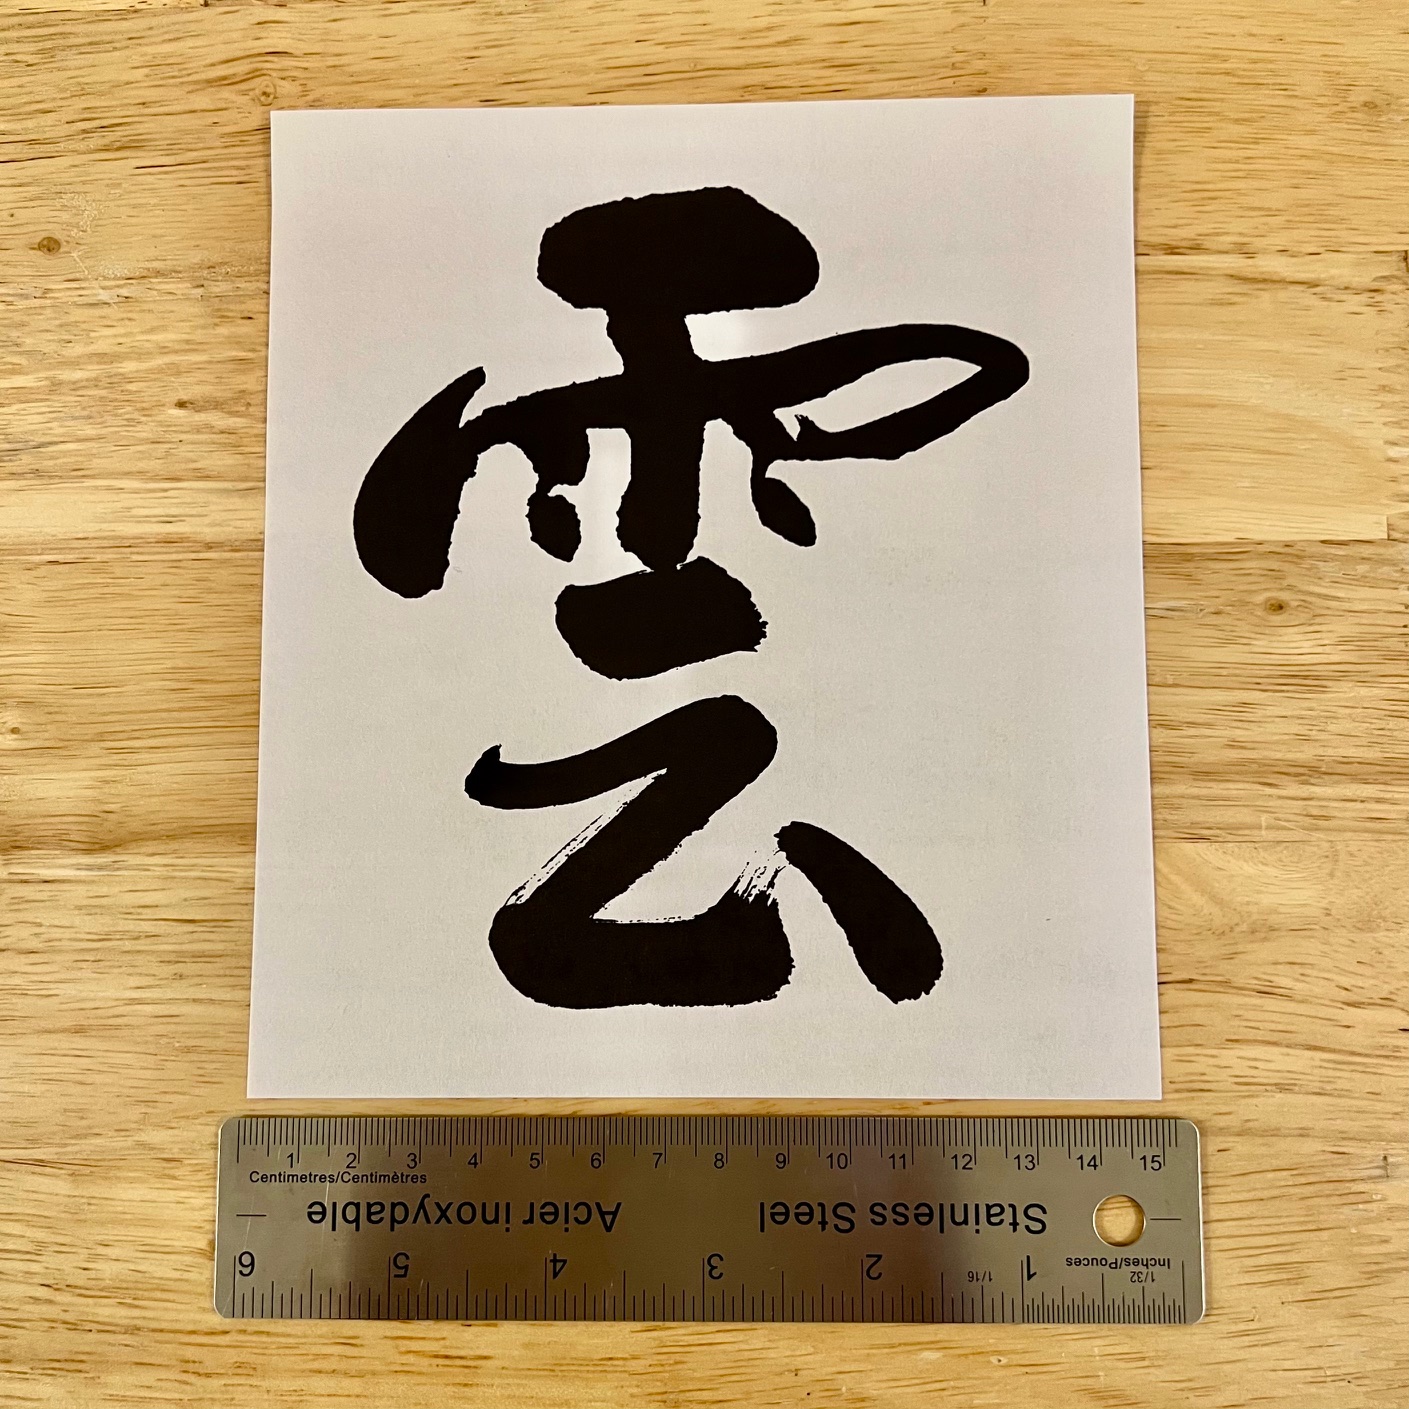 雲
1 2 3 4 5 6 7 8 9 10 11 12 13 14 15
Centimetres/Centimètres
Stainless Steel Acier inoxydable
Inches/Pouces
1/32 1/16
1 2 3 4 5 6